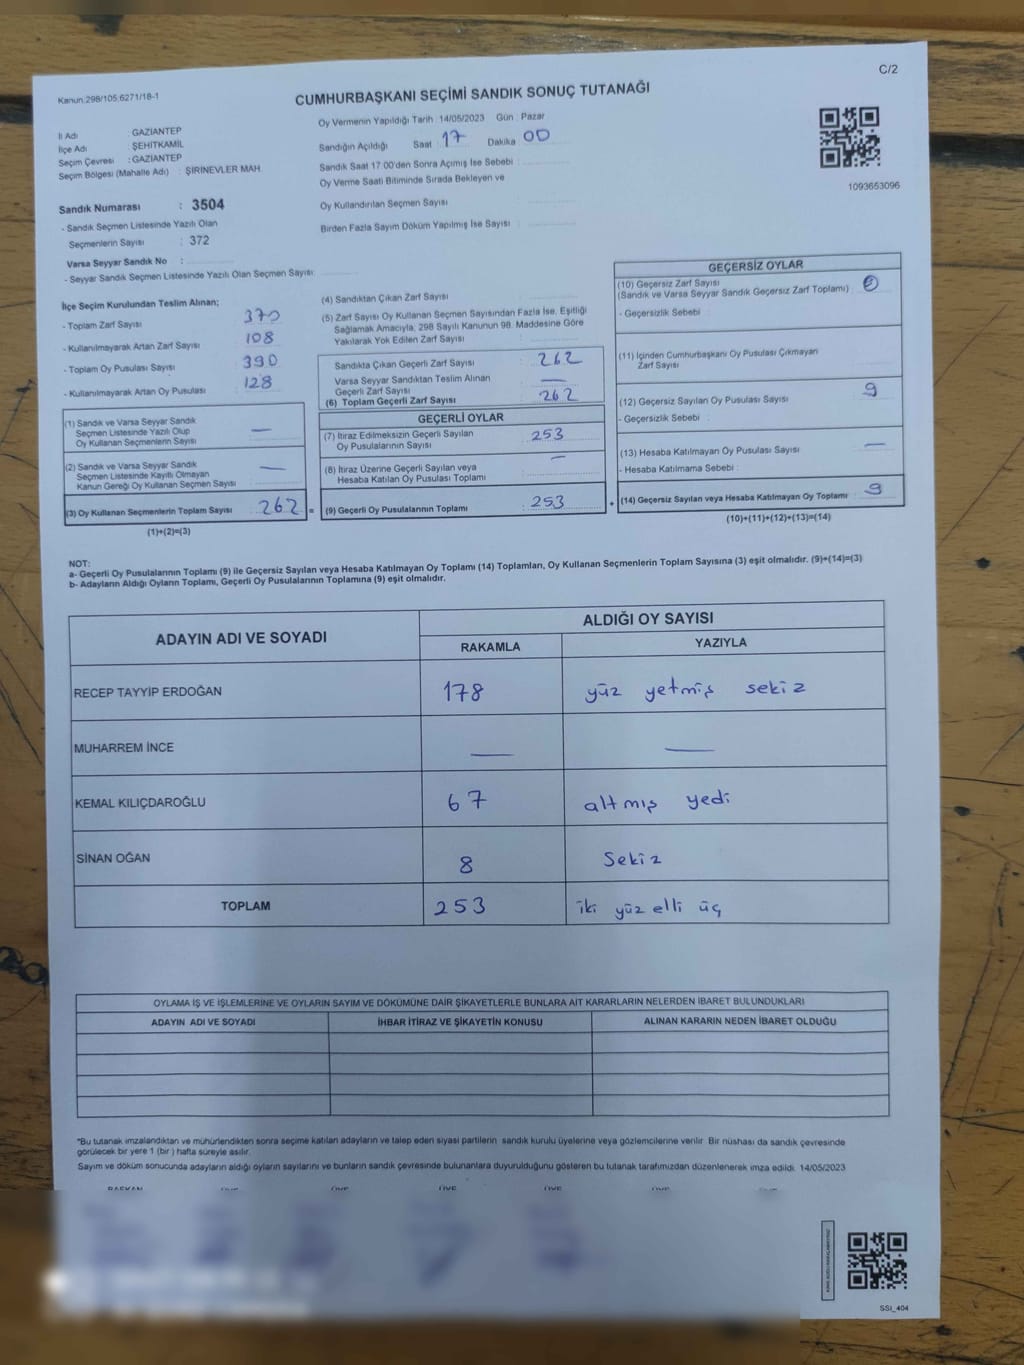 C/2
Kanun:298/105;6271/18-1
CUMHURBAŞKANI SEÇİMİ SANDIK SONUÇ TUTANAĞI
İl Adı : GAZİANTEP
İlçe Adı : ŞEHİTKAMİL
Seçim Çevresi : GAZİANTEP
Seçim Bölgesi (Mahalle Adı) : ŞİRİNEVLER MAH.
Oy Vermenin Yapıldığı Tarih :14/05/2023 Gün : Pazar
Sandığın Açıldığı Saat : 17 Dakika : 00
Sandık Saat 17:00'den Sonra Açımış İse Sebebi :
Oy Verme Saati Bitiminde Sırada Bekleyen ve
Oy Kullandırılan Seçmen Sayısı :
Birden Fazla Sayım Döküm Yapılmış İse Sayısı :
1093653096
Sandık Numarası : 3504
- Sandık Seçmen Listesinde Yazılı Olan
Seçmenlerin Sayısı : 372
Varsa Seyyar Sandık No :
- Seyyar Sandık Seçmen Listesinde Yazılı Olan Seçmen Sayısı:
İlçe Seçim Kurulundan Teslim Alınan;
- Toplam Zarf Sayısı : 370
- Kullanılmayarak Artan Zarf Sayısı : 108
- Toplam Oy Pusulası Sayısı : 390
- Kullanılmayarak Artan Oy Pusulası : 128
(1) Sandık ve Varsa Seyyar Sandık
Seçmen Listesinde Yazılı Olup
Oy Kullanan Seçmenlerin Sayısı : —
(2) Sandık ve Varsa Seyyar Sandık
Seçmen Listesinde Kayıtlı Olmayan
Kanun Gereği Oy Kullanan Seçmen Sayısı : —
(3) Oy Kullanan Seçmenlerin Toplam Sayısı : 262 =
(1)+(2)=(3)
(4) Sandıktan Çıkan Zarf Sayısı :
(5) Zarf Sayısı Oy Kullanan Seçmen Sayısından Fazla İse, Eşitliği
Sağlamak Amacıyla; 298 Sayılı Kanunun 98. Maddesine Göre
Yakılarak Yok Edilen Zarf Sayısı :
Sandıkta Çıkan Geçerli Zarf Sayısı : 262
Varsa Seyyar Sandıktan Teslim Alınan
Geçerli Zarf Sayısı : —
(6) Toplam Geçerli Zarf Sayısı : 262
GEÇERLİ OYLAR
(7) İtiraz Edilmeksizin Geçerli Sayılan
Oy Pusulalarının Sayısı : 253
(8) İtiraz Üzerine Geçerli Sayılan veya
Hesaba Katılan Oy Pusulası Toplamı : —
(9) Geçerli Oy Pusulalarının Toplamı : 253 +
GEÇERSİZ OYLAR
(10) Geçersiz Zarf Sayısı
(Sandık ve Varsa Seyyar Sandık Geçersiz Zarf Toplamı) :
- Geçersizlik Sebebi :
(11) İçinden Cumhurbaşkanı Oy Pusulası Çıkmayan
Zarf Sayısı :
(12) Geçersiz Sayılan Oy Pusulası Sayısı : 9
- Geçersizlik Sebebi :
(13) Hesaba Katılmayan Oy Pusulası Sayısı : —
- Hesaba Katılmama Sebebi :
(14) Geçersiz Sayılan veya Hesaba Katılmayan Oy Toplamı : 9
(10)+(11)+(12)+(13)=(14)
NOT:
a- Geçerli Oy Pusulalarının Toplamı (9) ile Geçersiz Sayılan veya Hesaba Katılmayan Oy Toplamı (14) Toplamları, Oy Kullanan Seçmenlerin Toplam Sayısına (3) eşit olmalıdır. (9)+(14)=(3)
b- Adayların Aldığı Oyların Toplamı, Geçerli Oy Pusulalarının Toplamına (9) eşit olmalıdır.
ADAYIN ADI VE SOYADI
ALDIĞI OY SAYISI
RAKAMLA YAZIYLA
RECEP TAYYİP ERDOĞAN 178 yüz yetmiş sekiz
MUHARREM İNCE — —
KEMAL KILIÇDAROĞLU 67 altmış yedi
SİNAN OĞAN 8 Sekiz
TOPLAM 253 iki yüz elli üç
OYLAMA İŞ VE İŞLEMLERİNE VE OYLARIN SAYIM VE DÖKÜMÜNE DAİR ŞİKAYETLERLE BUNLARA AİT KARARLARIN NELERDEN İBARET BULUNDUKLARI
ADAYIN ADI VE SOYADI İHBAR İTİRAZ VE ŞİKAYETİN KONUSU ALINAN KARARIN NEDEN İBARET OLDUĞU
*Bu tutanak imzalandıktan ve mühürlendikten sonra seçime katılan adayların ve talep eden siyasi partilerin sandık kurulu üyelerine veya gözlemcilerine verilir. Bir nüshası da sandık çevresinde
görülecek bir yere 1 (bir ) hafta süreyle asılır.
Sayım ve döküm sonucunda adayların aldığı oyların sayılarını ve bunların sandık çevresinde bulunanlara duyurulduğunu gösteren bu tutanak tarafımızdan düzenlenerek imza edildi. 14/05/2023
SSI_404